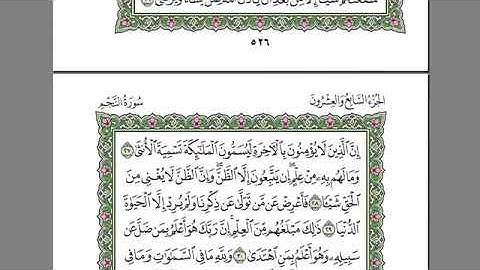 شَفَٰعَتُهُمْ شَيْـًٔا إِلَّا مِنۢ بَعْدِ أَن يَأْذَنَ ٱللَّهُ لِمَن يَشَآءُ وَيَرْضَىٰٓ ٢٦
٥٢٦
الجزء السابع والعشرون سورة النجم
إِنَّ ٱلَّذِينَ لَا يُؤْمِنُونَ بِٱلْءَاخِرَةِ لَيُسَمُّونَ ٱلْمَلَٰٓئِكَةَ تَسْمِيَةَ ٱلْأُنثَىٰ ٢٧
وَمَا لَهُم بِهِۦ مِنْ عِلْمٍ إِن يَتَّبِعُونَ إِلَّا ٱلظَّنَّ وَإِنَّ ٱلظَّنَّ لَا يُغْنِى مِنَ
ٱلْحَقِّ شَيْـًٔا ٢٨ فَأَعْرِضْ عَن مَّن تَوَلَّىٰ عَن ذِكْرِنَا وَلَمْ يُرِدْ إِلَّا ٱلْحَيَوٰةَ
ٱلدُّنْيَا ٢٩ ذَٰلِكَ مَبْلَغُهُم مِّنَ ٱلْعِلْمِ إِنَّ رَبَّكَ هُوَ أَعْلَمُ بِمَن ضَلَّ عَن
سَبِيلِهِۦ وَهُوَ أَعْلَمُ بِمَنِ ٱهْتَدَىٰ ٣٠ وَلِلَّهِ مَا فِى ٱلسَّمَٰوَٰتِ وَمَا فِى